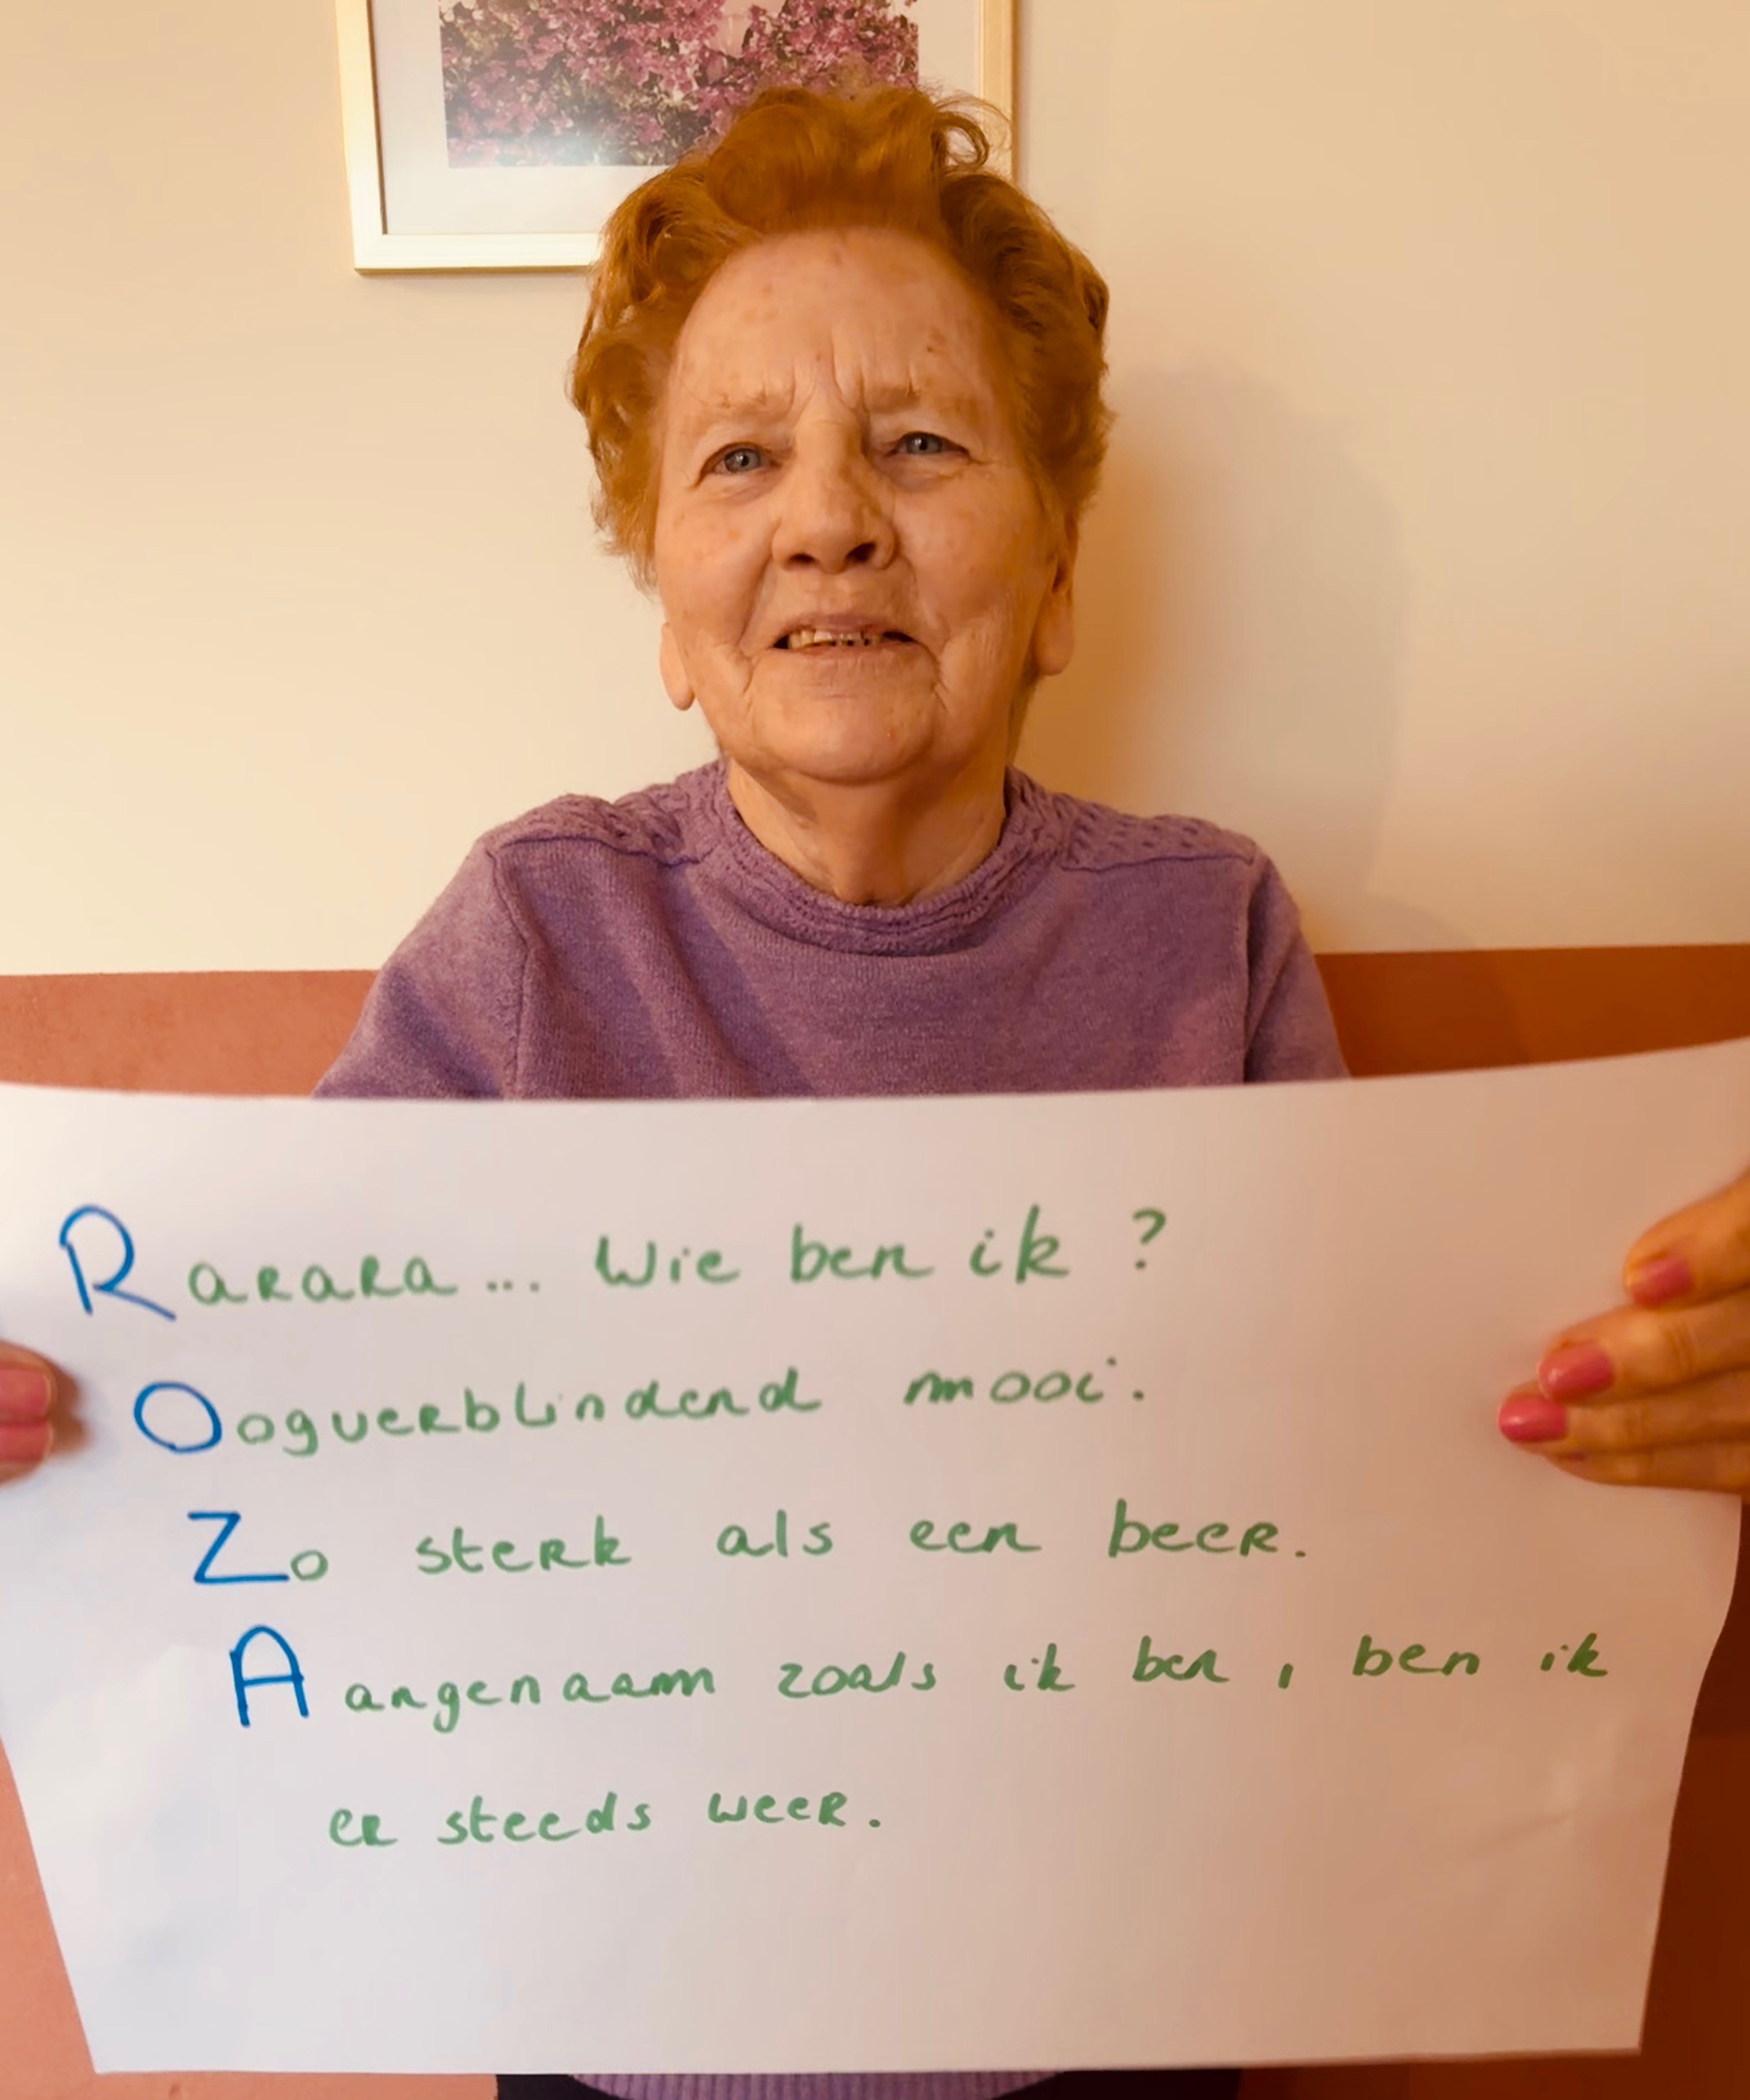 Rarara... Wie ben ik?
Oogverblindend mooi.
Zo sterk als een beer.
Aangenaam zoals ik ben, ben ik
er steeds weer.